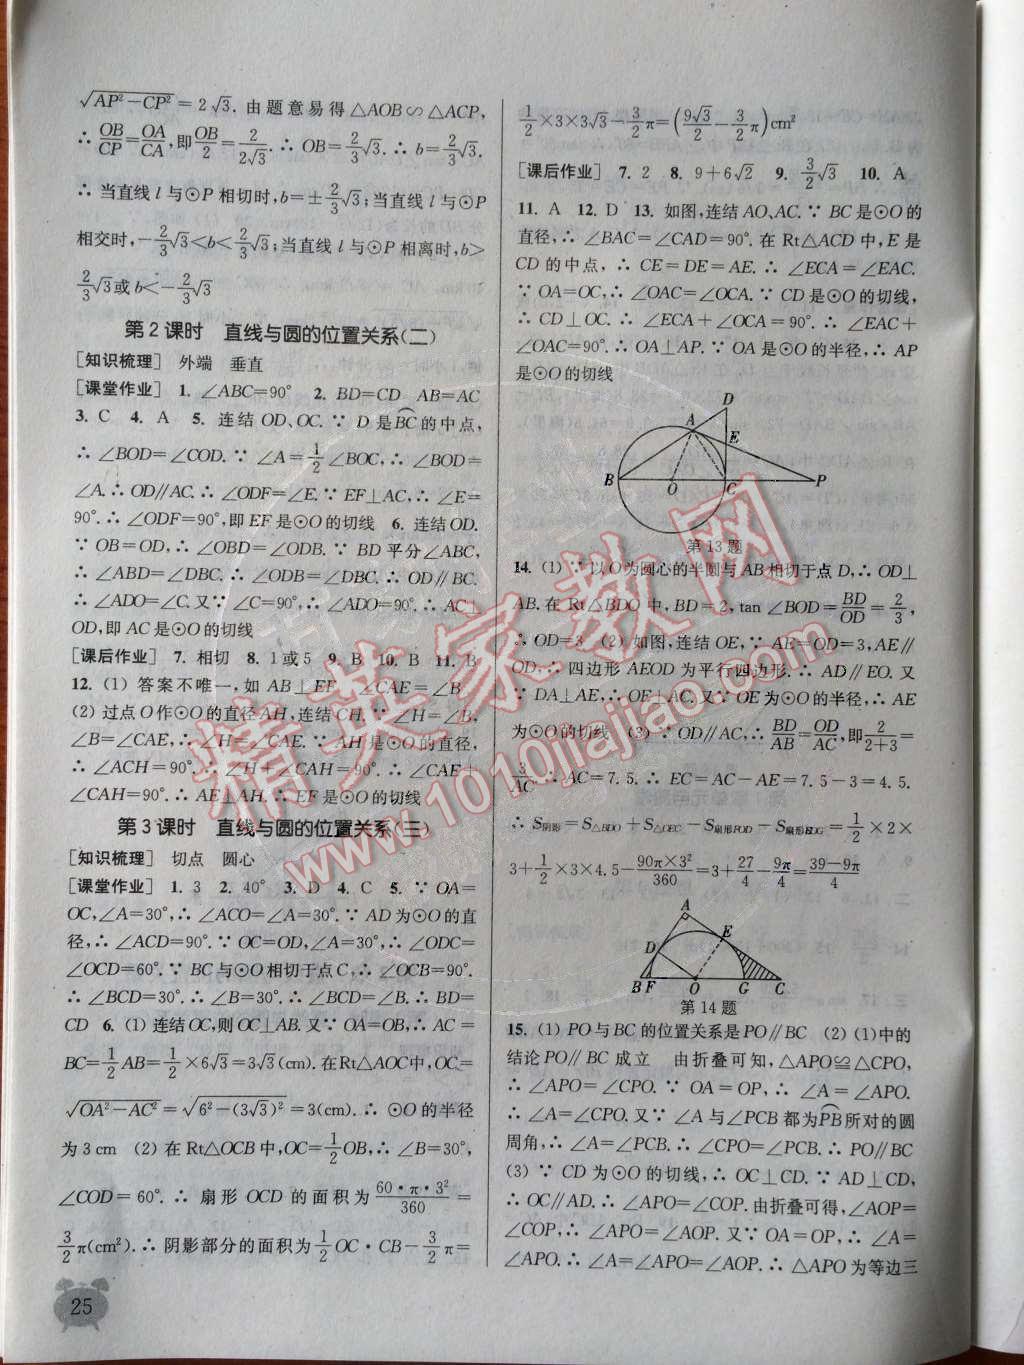 √(AP²−CP²)=2√3. 由题意易得△AOB∽△ACP,
∴ OB/CP=OA/CA,即OB/2=2/(2√3). ∴ OB=2/3√3. ∴ b=2/3√3.
∴ 当直线 l 与⊙P 相切时,b=±2/3√3;当直线 l 与⊙P
相交时,−2/3√3<b<2/3√3;当直线 l 与⊙P 相离时,b>
2/3√3或 b<−2/3√3
第2课时 直线与圆的位置关系(二)
[知识梳理] 外端 垂直
[课堂作业] 1. ∠ABC=90° 2. BD=CD AB=AC
3. C 4. A 5. 连结 OD、OC. ∵ D 是BC⌒的中点,
∴ ∠BOD=∠COD. ∵ ∠A=1/2∠BOC,∴ ∠BOD=
∠A. ∴ OD∥AC. ∴ ∠ODF=∠E. ∵ EF⊥AC,∴ ∠E=
90°. ∴ ∠ODF=90°,即 EF 是⊙O 的切线 6. 连结 OD.
∵ OB=OD,∴ ∠OBD=∠ODB. ∵ BD 平分∠ABC,
∴ ∠ABD=∠DBC. ∴ ∠ODB=∠DBC. ∴ OD∥BC.
∴ ∠ADO=∠C. 又∵ ∠C=90°,∴ ∠ADO=90°. ∴ AC⊥
OD,即 AC 是⊙O 的切线
[课后作业] 7. 相切 8. 1 或 5 9. B 10. B 11. B
12. (1) 答案不唯一,如 AB⊥EF、∠CAE=∠B
(2) 过点 O 作⊙O 的直径 AH,连结 CH. ∵ ∠H=∠B,
∠B=∠CAE,∴ ∠H=∠CAE. ∵ AH 是⊙O 的直径,
∴ ∠ACH=90°. ∴ ∠H+∠CAH=90°. ∴ ∠CAE+
∠CAH=90°. ∴ AE⊥AH. ∴ EF 是⊙O 的切线
第3课时 直线与圆的位置关系(三)
[知识梳理] 切点 圆心
[课堂作业] 1. 3 2. 40° 3. D 4. C 5. ∵ OA=
OC,∠A=30°,∴ ∠ACO=∠A=30°. ∵ AD 为⊙O 的直
径,∴ ∠ACD=90°. ∵ OC=OD,∠A=30°,∴ ∠ODC=
∠OCD=60°. ∵ BC 与⊙O 相切于点 C,∴ ∠OCB=90°.
∴ ∠BCD=30°. ∴ ∠B=30°. ∴ ∠B=∠BCD. ∴ BD=
CD 6. (1) 连结 OC,则 OC⊥AB. 又∵ OA=OB,∴ AC=
BC=1/2AB=1/2×6√3=3√3(cm). 在Rt△AOC中,OC=
√(OA²−AC²)=√(6²−(3√3)²)=3(cm). ∴ ⊙O 的半径
为 3 cm (2) 在 Rt△OCB 中,OC=1/2OB,∴ ∠B=30°,
∠COD=60°. ∴ 扇形 OCD 的面积为(60·π·3²)/360=
3/2π(cm²). ∴ 阴影部分的面积为1/2OC·CB−3/2π=
25
1/2×3×3√3−3/2π=(9√3/2−3/2π)cm²
[课后作业] 7. 2 8. 9+6√2 9. 3/2√3 10. A
11. A 12. D 13. 如图,连结 AO、AC. ∵ BC 是⊙O 的
直径,∴ ∠BAC=∠CAD=90°. 在 Rt△ACD 中,E 是
CD 的中点,∴ CE=DE=AE. ∴ ∠ECA=∠EAC.
∵ OA=OC,∴ ∠OAC=∠OCA. ∵ CD 是⊙O 的切线,
∴ CD⊥OC. ∴ ∠ECA+∠OCA=90°. ∴ ∠EAC+
∠OAC=90°. ∴ OA⊥AP. ∵ OA 是⊙O 的半径,∴ AP
是⊙O 的切线
D
A
E
B
O
C
P
第13题
14. (1) ∵ 以 O 为圆心的半圆与 AB 相切于点 D,∴ OD⊥
AB. 在 Rt△BDO 中,BD=2,tan ∠BOD=BD/OD=2/3,
∴ OD=3 (2) 如图,连结 OE,∵ AE=OD=3,AE∥
OD,∴ 四边形 AEOD 为平行四边形. ∴ AD∥EO. 又
∵ DA⊥AE,∴ OE⊥AC. 又∵ OE 为⊙O 的半径,∴ AE
为⊙O 的切线 (3) ∵ OD∥AC,∴ BD/AB=OD/AC,即2/(2+3)=
3/AC. ∴ AC=7.5. ∴ EC=AC−AE=7.5−3=4.5.
∴ S阴影=S△BDO+S△OEC−S扇形FOD−S扇形EOG=1/2×2×
3+1/2×3×4.5−(90π×3²)/360=3+27/4−9π/4=(39−9π)/4
A
D
E
B
F
O
G
C
第14题
15. (1) PO 与 BC 的位置关系是 PO∥BC (2) (1)中的
结论 PO∥BC 成立 由折叠可知,△APO≌△CPO,
∴ ∠APO=∠CPO. ∵ OA=OP,∴ ∠A=∠APO.
∴ ∠A=∠CPO. 又∵ ∠A 与∠PCB 都为PB⌒所对的圆
周角,∴ ∠A=∠PCB. ∴ ∠CPO=∠PCB. ∴ PO∥BC
(3) ∵ CD 为⊙O 的切线,∴ OC⊥CD. ∵ AD⊥CD,
∴ OC∥AD. ∴ ∠APO=∠COP. 由折叠可得,∠AOP=
∠COP,∴ ∠APO=∠AOP. 又∵ OA=OP,∴ ∠A=
∠APO. ∴ ∠A=∠APO=∠AOP. ∴ △APO 为等边三
精英家教网
www.1010jiajiao.com